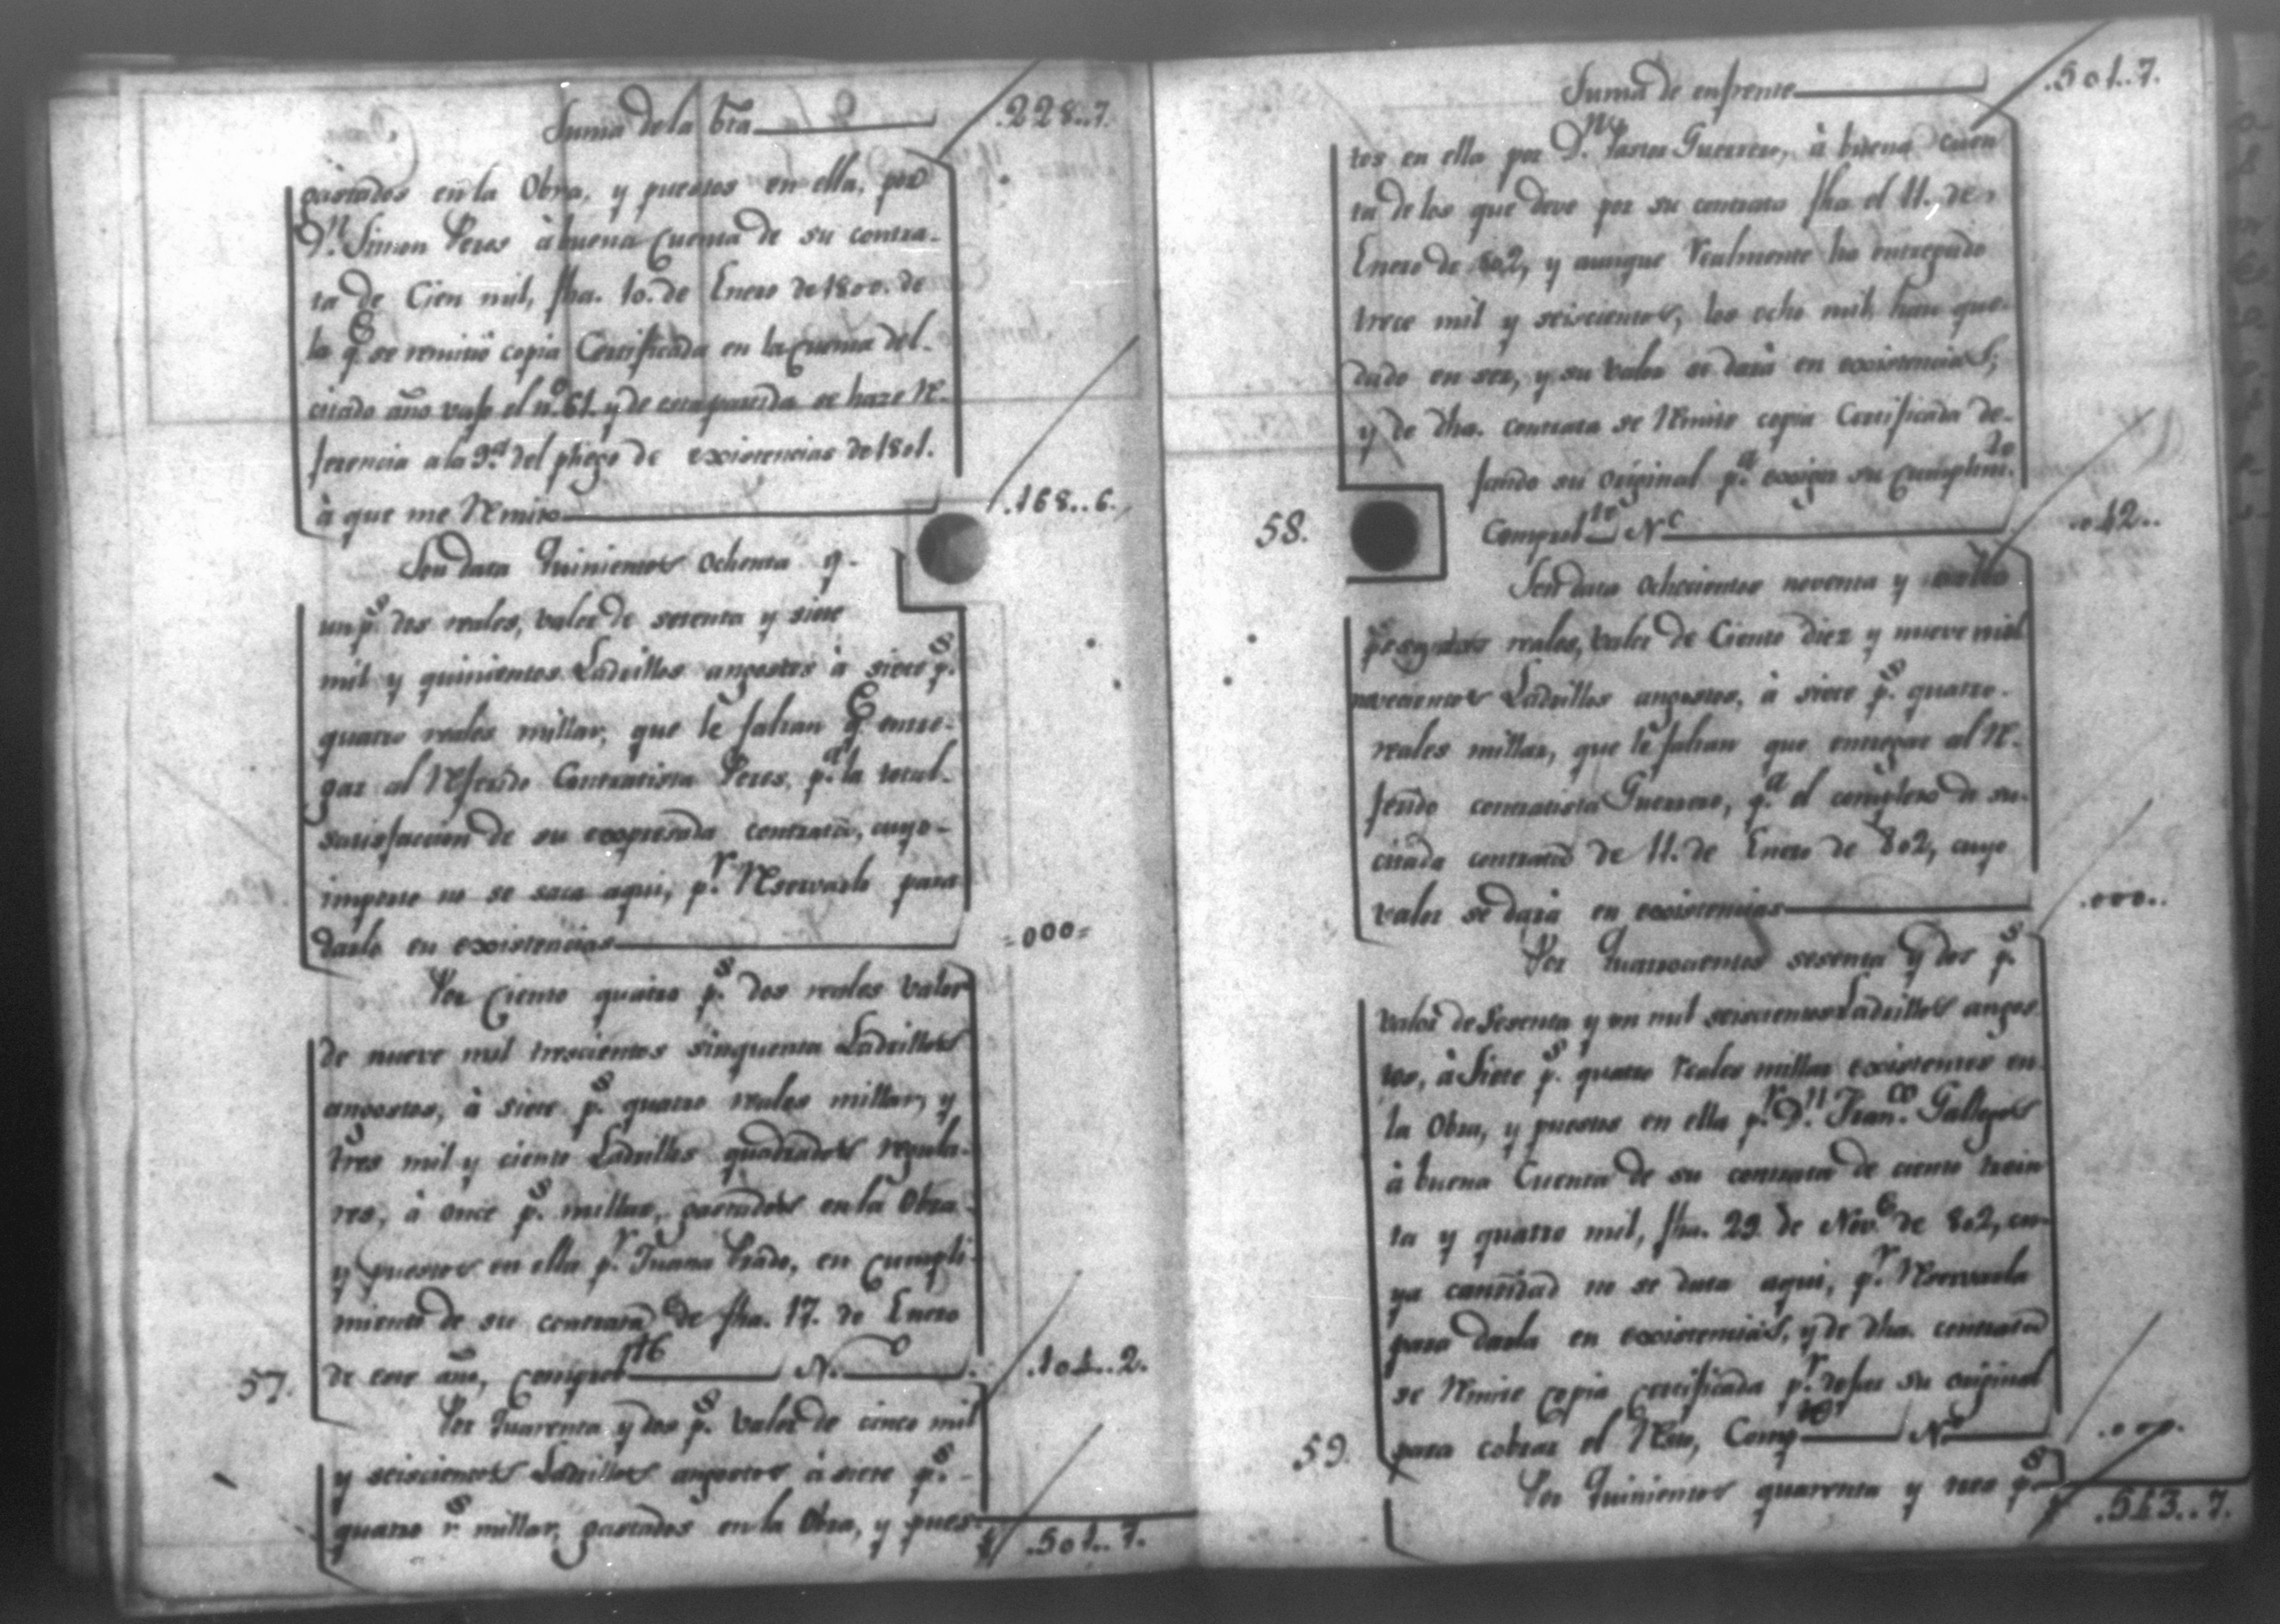 Suma de la bta .228..7.
gastados en la Obra, y puestos en ella, por
Dn. Simon Peres à buena Cuenta de su contra-
ta de Cien mil, fha. 10. de Enero de 1800. de
la q.e se remitiò copia Certificada en la Cuenta del
citado año vajo el no. 61. y de esta partida se haze Re-
ferencia a la 9.a del pliego de existencias de 1801.
à que me Remito .168..6.
Son data Quinientos ochenta y
un p.s dos reales, valor de setenta y siete
mil y quinientos Ladrillos angostos à siete p.s
quatro reales millar, que le faltan q.e entre-
gar al Referido Contratista Peres, p.a la total
satisfaccion de su expresada contrata, cuyo
importe no se saca aqui, p.r Reservarlo para
darlo en existencias =000=
Por Ciento quatro p.s dos reales valor
de nueve mil trescientos sinquenta Ladrillos
angostos, à siete p.s quatro reales millar, y
tres mil y ciento Ladrillos quadrados regula-
res, à once p.s millar, gastados en la Obra
y puestos en ella p.r Juana Prado, en Cumpli-
miento de su contrata de fha. 17. de Enero
57. de este año, Comprob.te No. .104..2.
Por Quarenta y dos p.s valor de cinco mil
y seiscientos Ladrillos angostos à siete p.s
quatro r.s millar, gastados en la Obra, y pues-
.501..7.
Suma de enfrente .501..7.
tos en ella por Dn. Guerrero, à buena cuen
ta de los que deve por su contrata fha el 11. de
Enero de 802, y aunque Realmente ha entregado
trece mil y seiscientos, los ocho mil han que-
dado en ser, y su valor se darà en existencias;
y de dha. contrata se Remite copia Certificada de-
jando su original p.a exigir su Cumplim.to
58. Comprob.te No. .042..
Son data ochocientos noventa y
pesos reales, valor de Ciento diez y nueve mil
novecientos Ladrillos angostos, à siete p.s quatro
reales millar, que le faltan que entregar al Re-
ferido contratista Guerrero, p.a el completo de su
citada contrata de 11. de Enero de 802, cuyo
valor se darà en existencias .000..
Por Quatrocientos sesenta y dos p.s
valor de Sesenta y un mil seiscientos Ladrillos angos
tos, à Siete p.s quatro Reales millar existentes en
la Obra, y puestos en ella p.r Dn. Fran.co Gallegos
à buena Cuenta de su contrata de ciento trein
ta y quatro mil, fha. 29. de Nov.e de 802, cu-
ya cantidad no se data aqui, p.r Reservarla
para darla en existencias, y de dha. contrata
se Remite Copia Certificada p.r dejar su original
59. para cobrar el Resto, Comp.te No. .000.
Por Quinientos quarenta y tres p.s
.543..7.